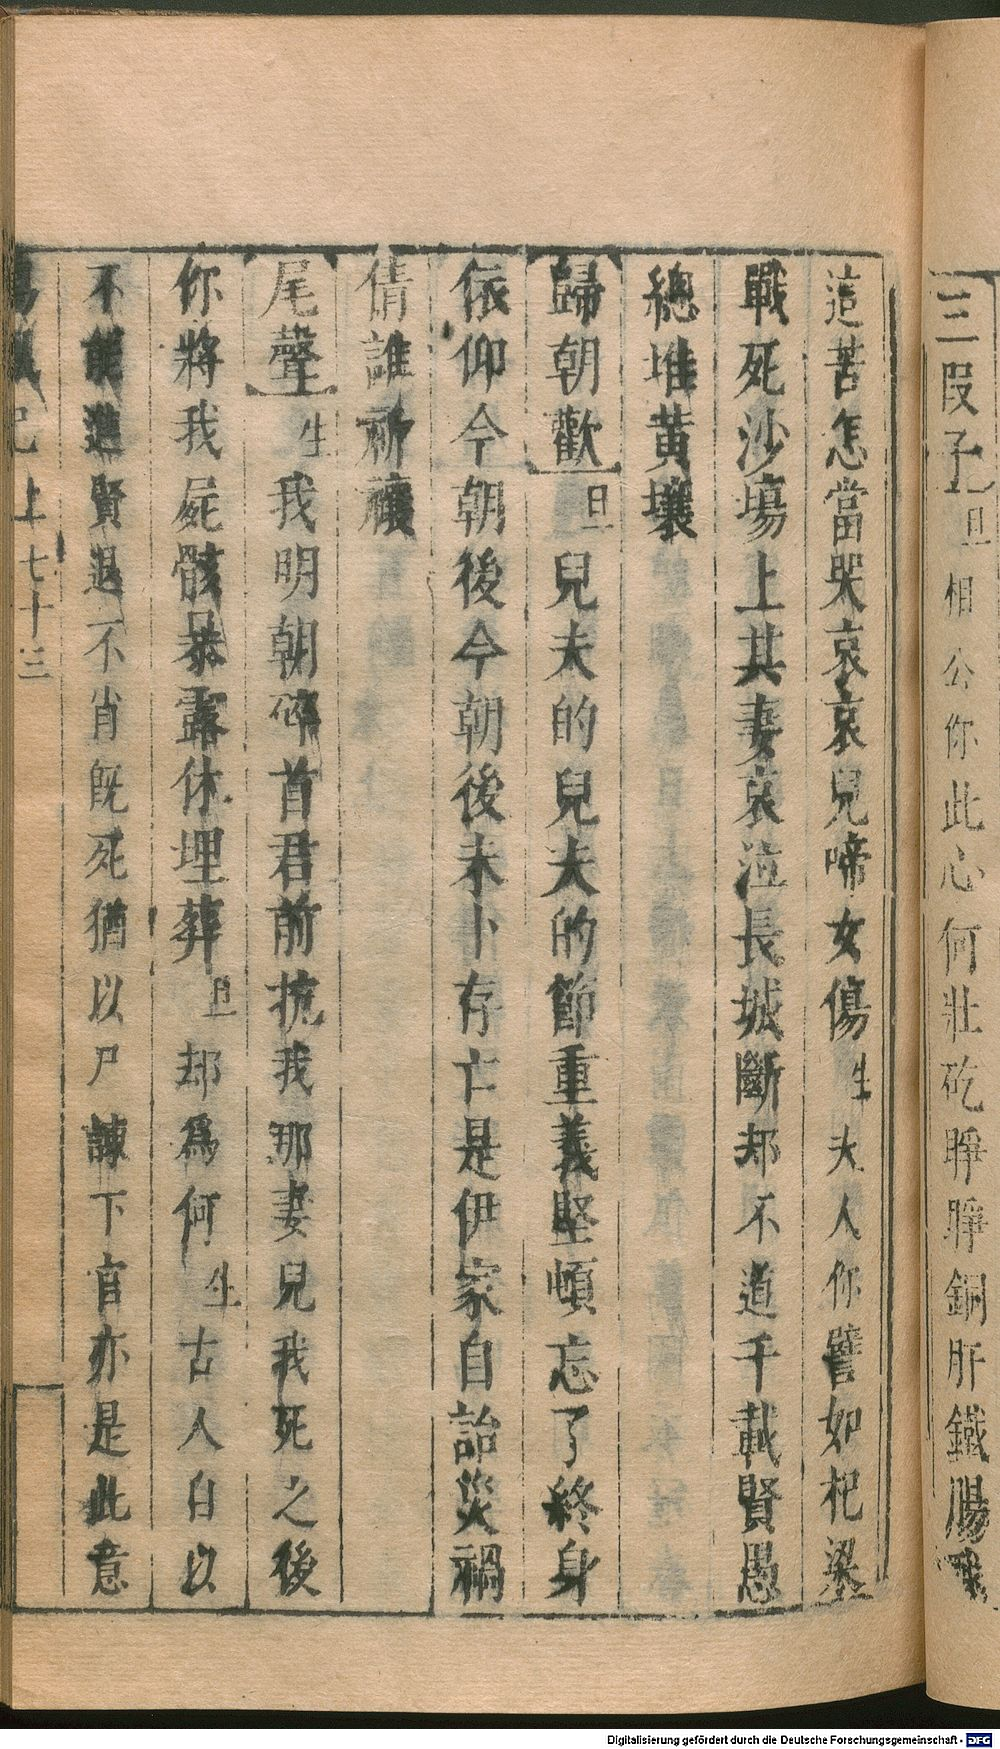 三叚子 旦 相公你此心何壯矻睜睜銅肝鐵腸
這苦怎當哭哀哀兒啼女傷 生 夫人你譬如杞梁
戰死沙塲上其妻哀泣長城斷却不道千載賢愚
總堆黄壤
歸朝歡 旦 兒夫的兒夫的節重義堅頓忘了終身
依仰今朝後今朝後未卜存亡是伊家自詒災禍
倩誰祈禳
尾聲 生 我明朝碎首君前抗我那妻兒我死之後
你將我屍骸暴露休埋葬 旦 却爲何 生 古人自以
不能進賢退不肖旣死猶以尸諫下官亦是此意
記上 七十三
Digitalisierung gefördert durch die Deutsche Forschungsgemeinschaft - DFG